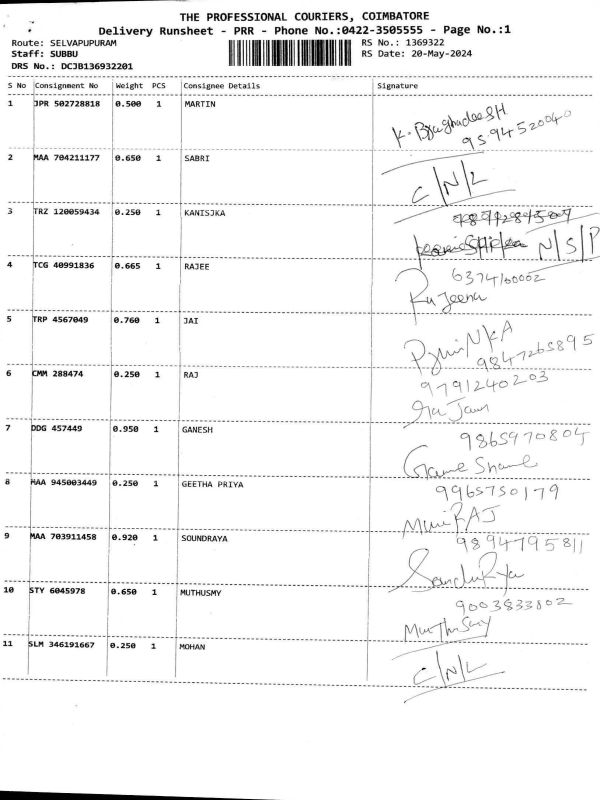 THE PROFESSIONAL COURIERS, COIMBATORE
Delivery Runsheet - PRR - Phone No.:0422-3505555 - Page No.:1
Route: SELVAPUPURAM RS No.: 1369322
Staff: SUBBU RS Date: 20-May-2024
DRS No.: DCJB136932201
S No Consignment No Weight PCS Consignee Details Signature
1 JPR 502728818 0.500 1 MARTIN
9594520040
2 MAA 704211177 0.650 1 SABRI
C/N/L
3 TRZ 120059434 0.250 1 KANISJKA
N/S/P
4 TCG 40991836 0.665 1 RAJEE
5 TRP 4567049 0.760 1 JAI
9847265895
6 CMM 288474 0.250 1 RAJ
9791240203
7 DDG 457449 0.950 1 GANESH
9865970804
8 MAA 945003449 0.250 1 GEETHA PRIYA
9965750179
9 MAA 703911458 0.920 1 SOUNDRAYA
9894795811
10 STY 6045978 0.650 1 MUTHUSMY
9003833802
11 SLM 346191667 0.250 1 MOHAN
C/N/L